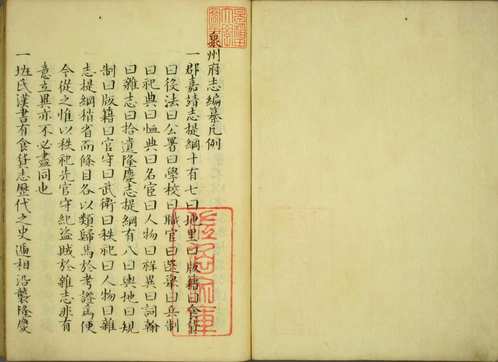 泉州府志編纂凡例
一郡嘉靖志提綱十有七曰地里曰版籍曰食貨
曰後法曰公署曰學校曰職官曰選舉曰兵制
曰祀典曰恤典曰名宦曰人物曰祥異曰詞翰
曰雜志曰拾遺隆慶志提綱有八曰輿地曰規
制曰版籍曰官守曰武衛曰秩祀曰人物曰雜
志提綱稍省而條目各以類歸焉於考證為便
今從之惟以秩祀先官守紀盜賊於雜志非有
意立異亦不必盡同也
一班氏漢書有食貨志歷代之史遞相沿襲隆慶